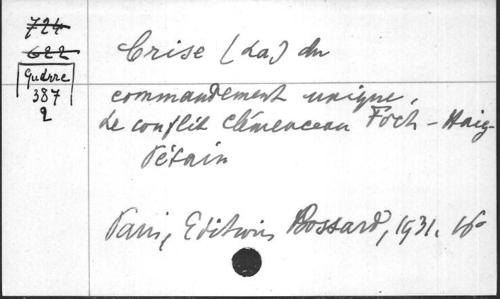 724
622
Guerre
387
2
Crise (La) du
commandement unique.
Le conflit Clémenceau Foch - Haig-
Pétain
Paris, Editions Bossard, 1931. 16°